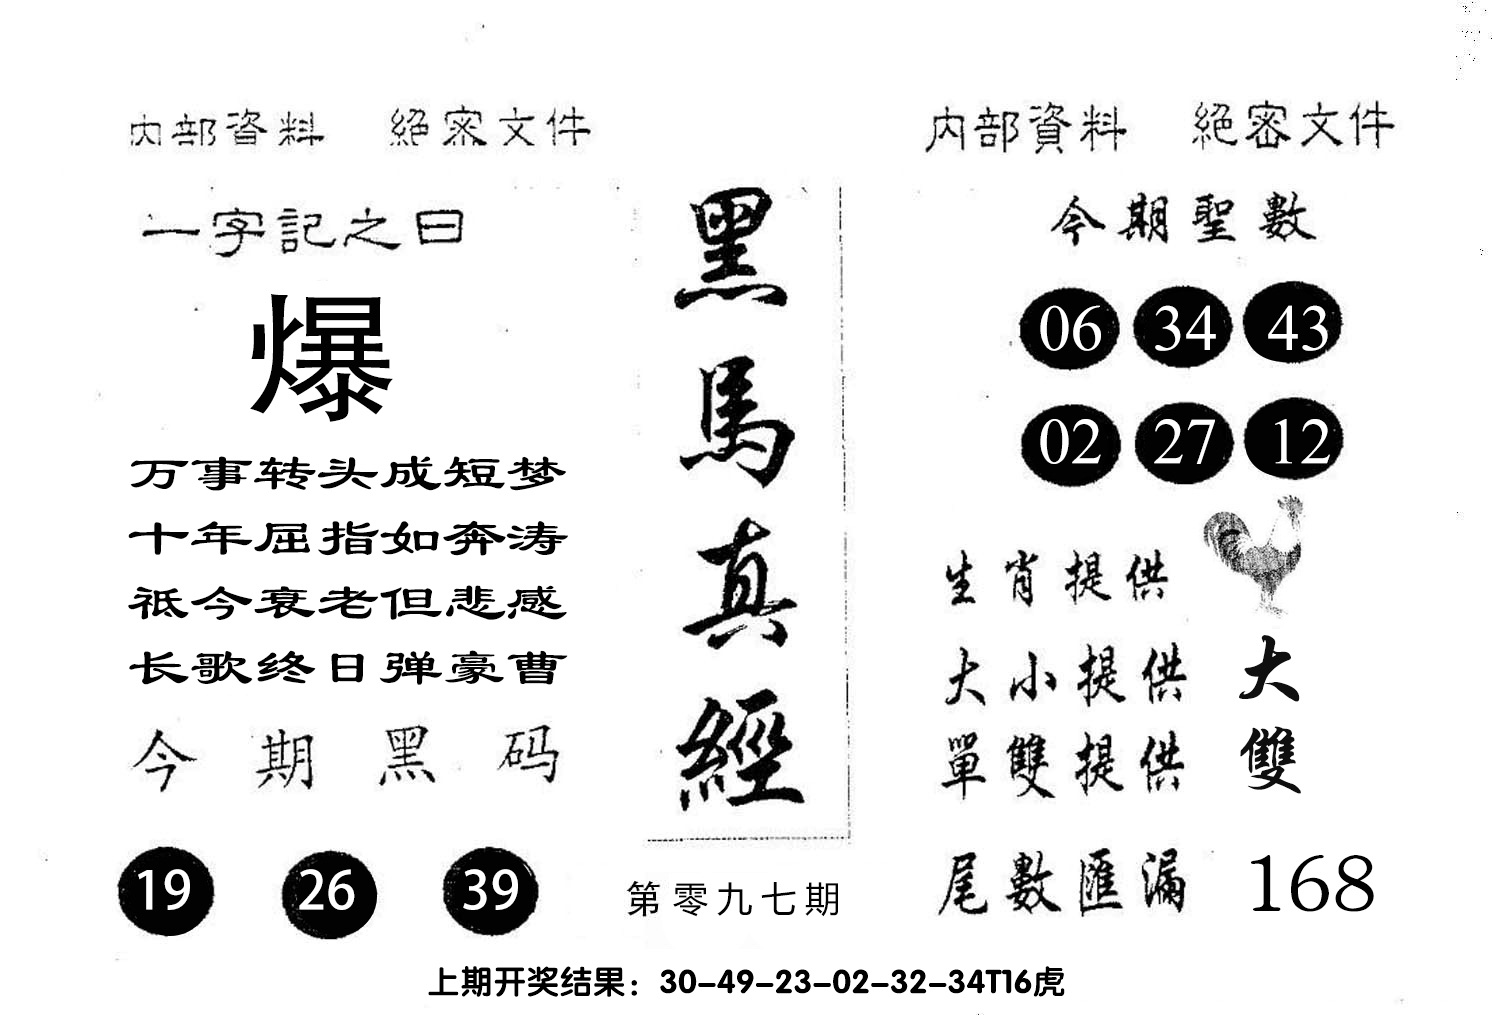 内部資料 絕密文件
一字記之曰
爆
万事转头成短梦
十年屈指如奔涛
祗今衰老但悲感
长歌终日弹豪曹
今期黑码
19 26 39
黑馬真經
第零九七期
内部資料 絕密文件
今期聖數
06 34 43
02 27 12
生肖提供
大小提供 大
單雙提供 雙
尾數匯漏 168
上期开奖结果：30-49-23-02-32-34T16虎